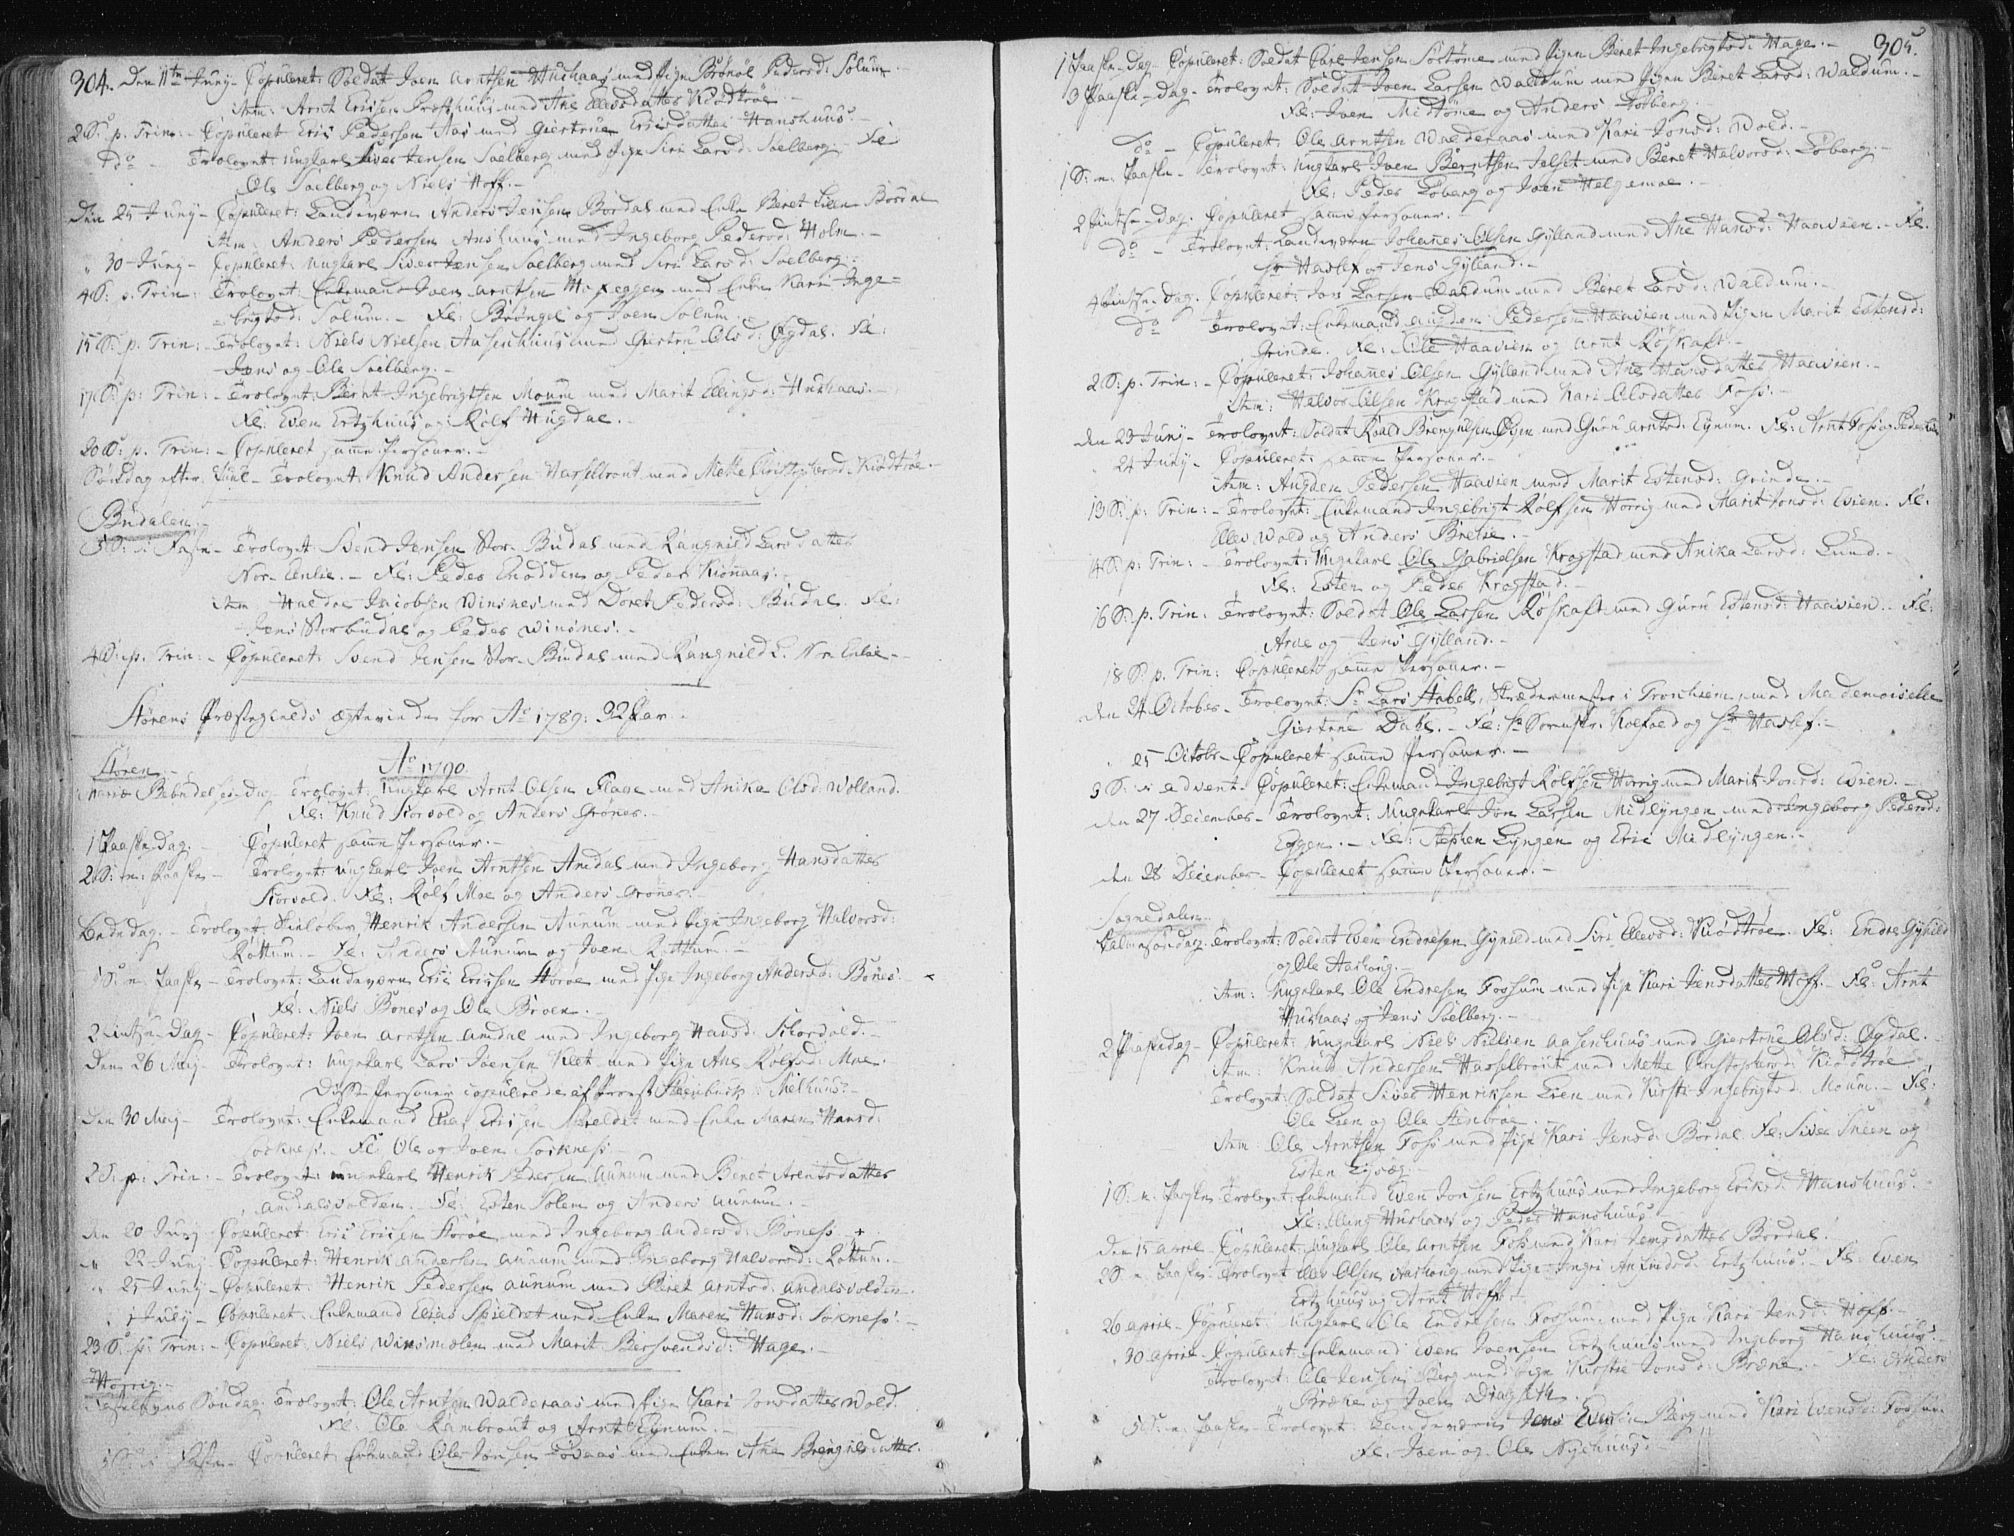 304. Den 11te Juny - Copuleret: Soldat Joen Arntsen Hushaas med Pige Brønöl Pedersd: Solum.
Item: Arnt Ericsen Præsthuus med Ane Ellevsdatter Kiodtröe.
2 S: p. Trin: - Copuleret Eric Pedersen Aas med Giertrue Ericsdatter Hanshuus.
do - Trolovet: Ungkarl Siver Jensen Soelberg med Pige Siri Larsd: Soelberg. - Fl:
Ole Soelberg og Niels Hoff. -
Den 25 Juny - Copuleret: Landeværn Anders Jensen Bordal med Enke Beret Bordal
Item: Anders Pedersen Anshuus med Ingeborg Pedersd: Holm. -
" 30 Juny - Copuleret: Ungkarl Siver Jensen Soelberg med Siri Larsd: Soelberg.
4 S: p. Trin: Trolovet: Enkemand Joen Arntsen Hageggen med Enke Kari Inge=
=brigtsd: Solum. - Fl: Brøngel og Joen Solum.
15 S: p. Trin: - Trolovet: Niels Nielsen Aasenhuus med Giertru Olsd: Ogdal. Fl:
Jens og Ole Soelberg. -
17 S: p: Trin: - Trolovet Bernt Ingebrigtsen Moum med Marit Ellingsd: Hushaas. -
Fl: Even Ertzhuus og Rolf Hugdal. -
20 S: p. Trin: - Copuleret samme Personer. -
Søndag efter Juul - Trolovet: Knud Andersen Hasselbrout med Mette Christophersd: Kiodtröe. -
Budalen. -
5 S: i Faste - Trolovet Svend Jensen Stor-Budal med Rangnild Larsdatter
Nor-Enlie. - Fl: Peder Enodden og Peder Kionaas. -
Item Haldor Jacobsen Winsnes med Doret Pedersd: Budal. Fl:
Jens Storbudal og Peder Winsnes. -
4 S: p. Trin: - Copuleret: Svend Jensen Stor-Budal med Rangnild L. Nor Enlie -
Størens Præstegields Ægtevinder for Ao 1789: 32 Par.
Ao 1790.
Støren. -
Mariæ Bebudelses Dag - Trolovet: Ungkarl Arnt Olsen Flaae med Anika Olsd: Wolland.
Fl: Knud Storvold og Anders Grønes. -
1 Paaske Dag. - Copuleret samme Personer. -
2 S: n: Paaske - Trolovet: Ungkarl Joen Arntsen Amdal med Ingeborg Hansdatter
Storvold. Fl: Rolf Moe og Anders Grönes.
Bededag. - Trolovet: Skieløber Henrik Andersen Aunum med Pige Ingeborg Halvorsd:
Rottum. - Fl: Anders Aunum og Joen Rottum. -
S: n. Paaske - Trolovet: Landeværn Eric Ericsen Storöe med Pige Ingeborg Andersd: Bones:
Fl: Niels Bones og Ole Broen. -
2 Pintse-Dag - Copuleret: Joen Arntsen Amdal med Ingeborg Hansd: Storvold. -
Den 26 May - Trolovet: Ungkarl Lars Joensen Klet med Pige Ane Rolfsd: Moe. -
Disse Personer copulerede af Provst Steenbuch i Melhuus. -
Den 30 May - Trolovet: Enkemand Elias Ericsen Spieldet med Enke Maren Hansd:
Soknes. - Fl: Ole og Joen Soknes. -
2 S: p: Trin: - Trolovet: Ungkarl Henrik Pedersen Aunum med Beret Arentsdatter
Amdalsvolden. - Fl: Esten Solem og Anders Aunum. -
den 20 Juny - Copuleret: Eric Ericsen Storöe med Ingeborg Andersd: Boness. +
" 22 Juny - Copuleret: Henrik Andersen Aunum med Ingeborg Halvorsd: Rottum. -
" 25 Juny - Copuleret: Henrik Pedersen Aunum med Beret Arntsd: Amdalsvolden.
1 July - Copuleret: Enkemand Elias Spieldet med Enke Maren Hansd: Soknes. -
23 S: p: Trin: - Copuleret: Niels Winsmoelen med Marit Bersvendsd: Hage. -
Horrig. -
Fastelavns Søndag. Trolovet: Ole Arntsen Walderaas med Pige Kari Jonsdatter Wold.
Fl: Ole Rambrout og Arnt Eynum. -
5 S: i Faste - Copuleret: Enkemand Ole Jonsen Lövaas med Enke Ane Brengilsdatter
305.
1 Paaske-Dag - Copuleret: Soldat Carl Jensen Sostöme med Pigen Beret Ingebrigtsd: Hage. -
3 Paaske-Dag - Trolovet: Soldat Joen Larsen Waldum med Pigen Beret Larsd: Waldum. -
Fl: Joen Midtöme og Anders Foßberg. -
do - Copuleret: Ole Arntsen Walderaas med Kari Jonsd: Wold. -
1 S: n: Paaske - Trolovet: Ungkarl Joen Berntsen Jelset med Beret Halvorsd: Loberg. -
Fl: Peder Loberg og Joen Helgemoe. -
2 Pintse-Dag. Copuleret samme Personer. -
do - Trolovet: Landeværn Johanes Olsen Gylland med Ane Hansd: Haavien. - Fl:
Sr Haslef og Jens Gylland. -
4 Pintse-Dag. Copuleret: Joen Larsen Waldum med Beret Larsd: Waldum. -
do - Trolovet: Enkemand Augden Pedersen Haavien med Pigen Marit Estensd:
Grinde. Fl: Ole Haavien og Arnt Röskaft. -
2 S: p. Trin: - Copuleret: Johanes Olsen Gylland med Ane Hansdatter Haavien. -
Item: Halvor Olsen Krogstad med Kari Olsdatter Foss. -
den 23 Juny - Trolovet: Soldat Roald Brengelsen Øyen med Guru Arntsd: Eynum. Fl: Arnt Foss og Peder
24 Juny - Copuleret: samme Personer. -
Item: Augden Pedersen Haavien med Marit Estensd: Grinde. -
13 S: p: Trin: - Trolovet: Enkemand Ingebrigt Rolfsen Horrig med Marit Jonsd: Evien. Fl:
Ellev Wold og Anders Bretie. -
14 S: p: Trin: - Trolovet: Ungkarl Ole Gabrielsen Krogstad med Anika Larsd: Lund. -
Fl: Esten og Peder Krogstad. -
16 S: p. Trin: - Trolovet: Soldat Ole Larsen Röskaft med Guru Estensd: Haavien. - Fl:
Arne og Jens Gylland. -
18 S: p. Trin: Copuleret samme Personer. -
den 24 October - Trolovet: Sr Lars Stabell, Skrædermester i Tronhiem, med Mademoiselle
Giertrue Dahl. - Fl: Sr Sorenskr. Kolfoed og Sr Haslef. -
25 Octobr - Copuleret samme Personer. -
3 S: i Advent - Copuleret: Enkemand Ingebrigt Rolfsen Horrig med Marit Jonsd: Evien. -
den 27 December - Trolovet: Ungkarl Jon Larsen Midlyngen med Ingeborg Pedersd:
Eggen. - Fl: Stephen Lyngen og Eric Midlyngen. -
den 28 December - Copuleret samme Personer. -
Sognedalen. -
Palmesöndag - Trolovet: Soldat Even Endresen Gynild med Siri Ellevsd: Kiodtröe. Fl: Endre Gynild
og Ole Aashoug. -
Item: Ungkarl Ole Endresen Fossum med Pige Kari Jensdatter Hoff. - Fl: Arnt
Hushaas og Jens Soelberg. -
2 Paaskedag - Copuleret: Ungkarl Niels Nielsen Aasenhuus med Giertrue Olsd: Ogdal. -
Item: Knud Andersen Hasselbrout med Mette Christophersd: Kiodtröe
Trolovet: Soldat Siver Henriksen Lien med Kirsti Ingebrigtsd: Moum. - Fl:
Ole Lien og Ole Stenbroe.
Item: Ole Arntsen Foss med Pige Kari Jensd: Bordal. Fl: Siver Skeen og
Esten .
1 S: n. Paaske - Trolovet: Enkemand Even Jonsen Ertzhuus med Ingeborg Ericsd: Hanshuus. -
Fl: Elling Hushaas og Peder Hanshuus.
Den 15 April - Copuleret: Ungkarl Ole Arntsen Foss med Kari Jensdatter Bordal.
2 S. n. Paaske - Trolovet Ellev Olsen Aashoug med Pige Ingri Anundsd: Ertzhuus. - Fl: Even
Ertzhuus og Arnt Hoff. -
26 April - Copuleret: Ungkarl Ole Endresen Fossum med Pige Kari Jensd: Hoff. -
" 30 April - Copuleret: Enkemand Even Joensen Ertzhuus med Ingeborg Hanshuus. -
Trolovet: Ole Jensen Berg med Pige Kirstie Jonsd: Bræne. - Fl: Anders
Bræne og Joen Dragseth.
5 S: n. Paaske - Trolovet: Landeværn Jens Evensen Berg med Kari Evensd: Fossum.
Fl: Joen og Ole Nyehuus. -